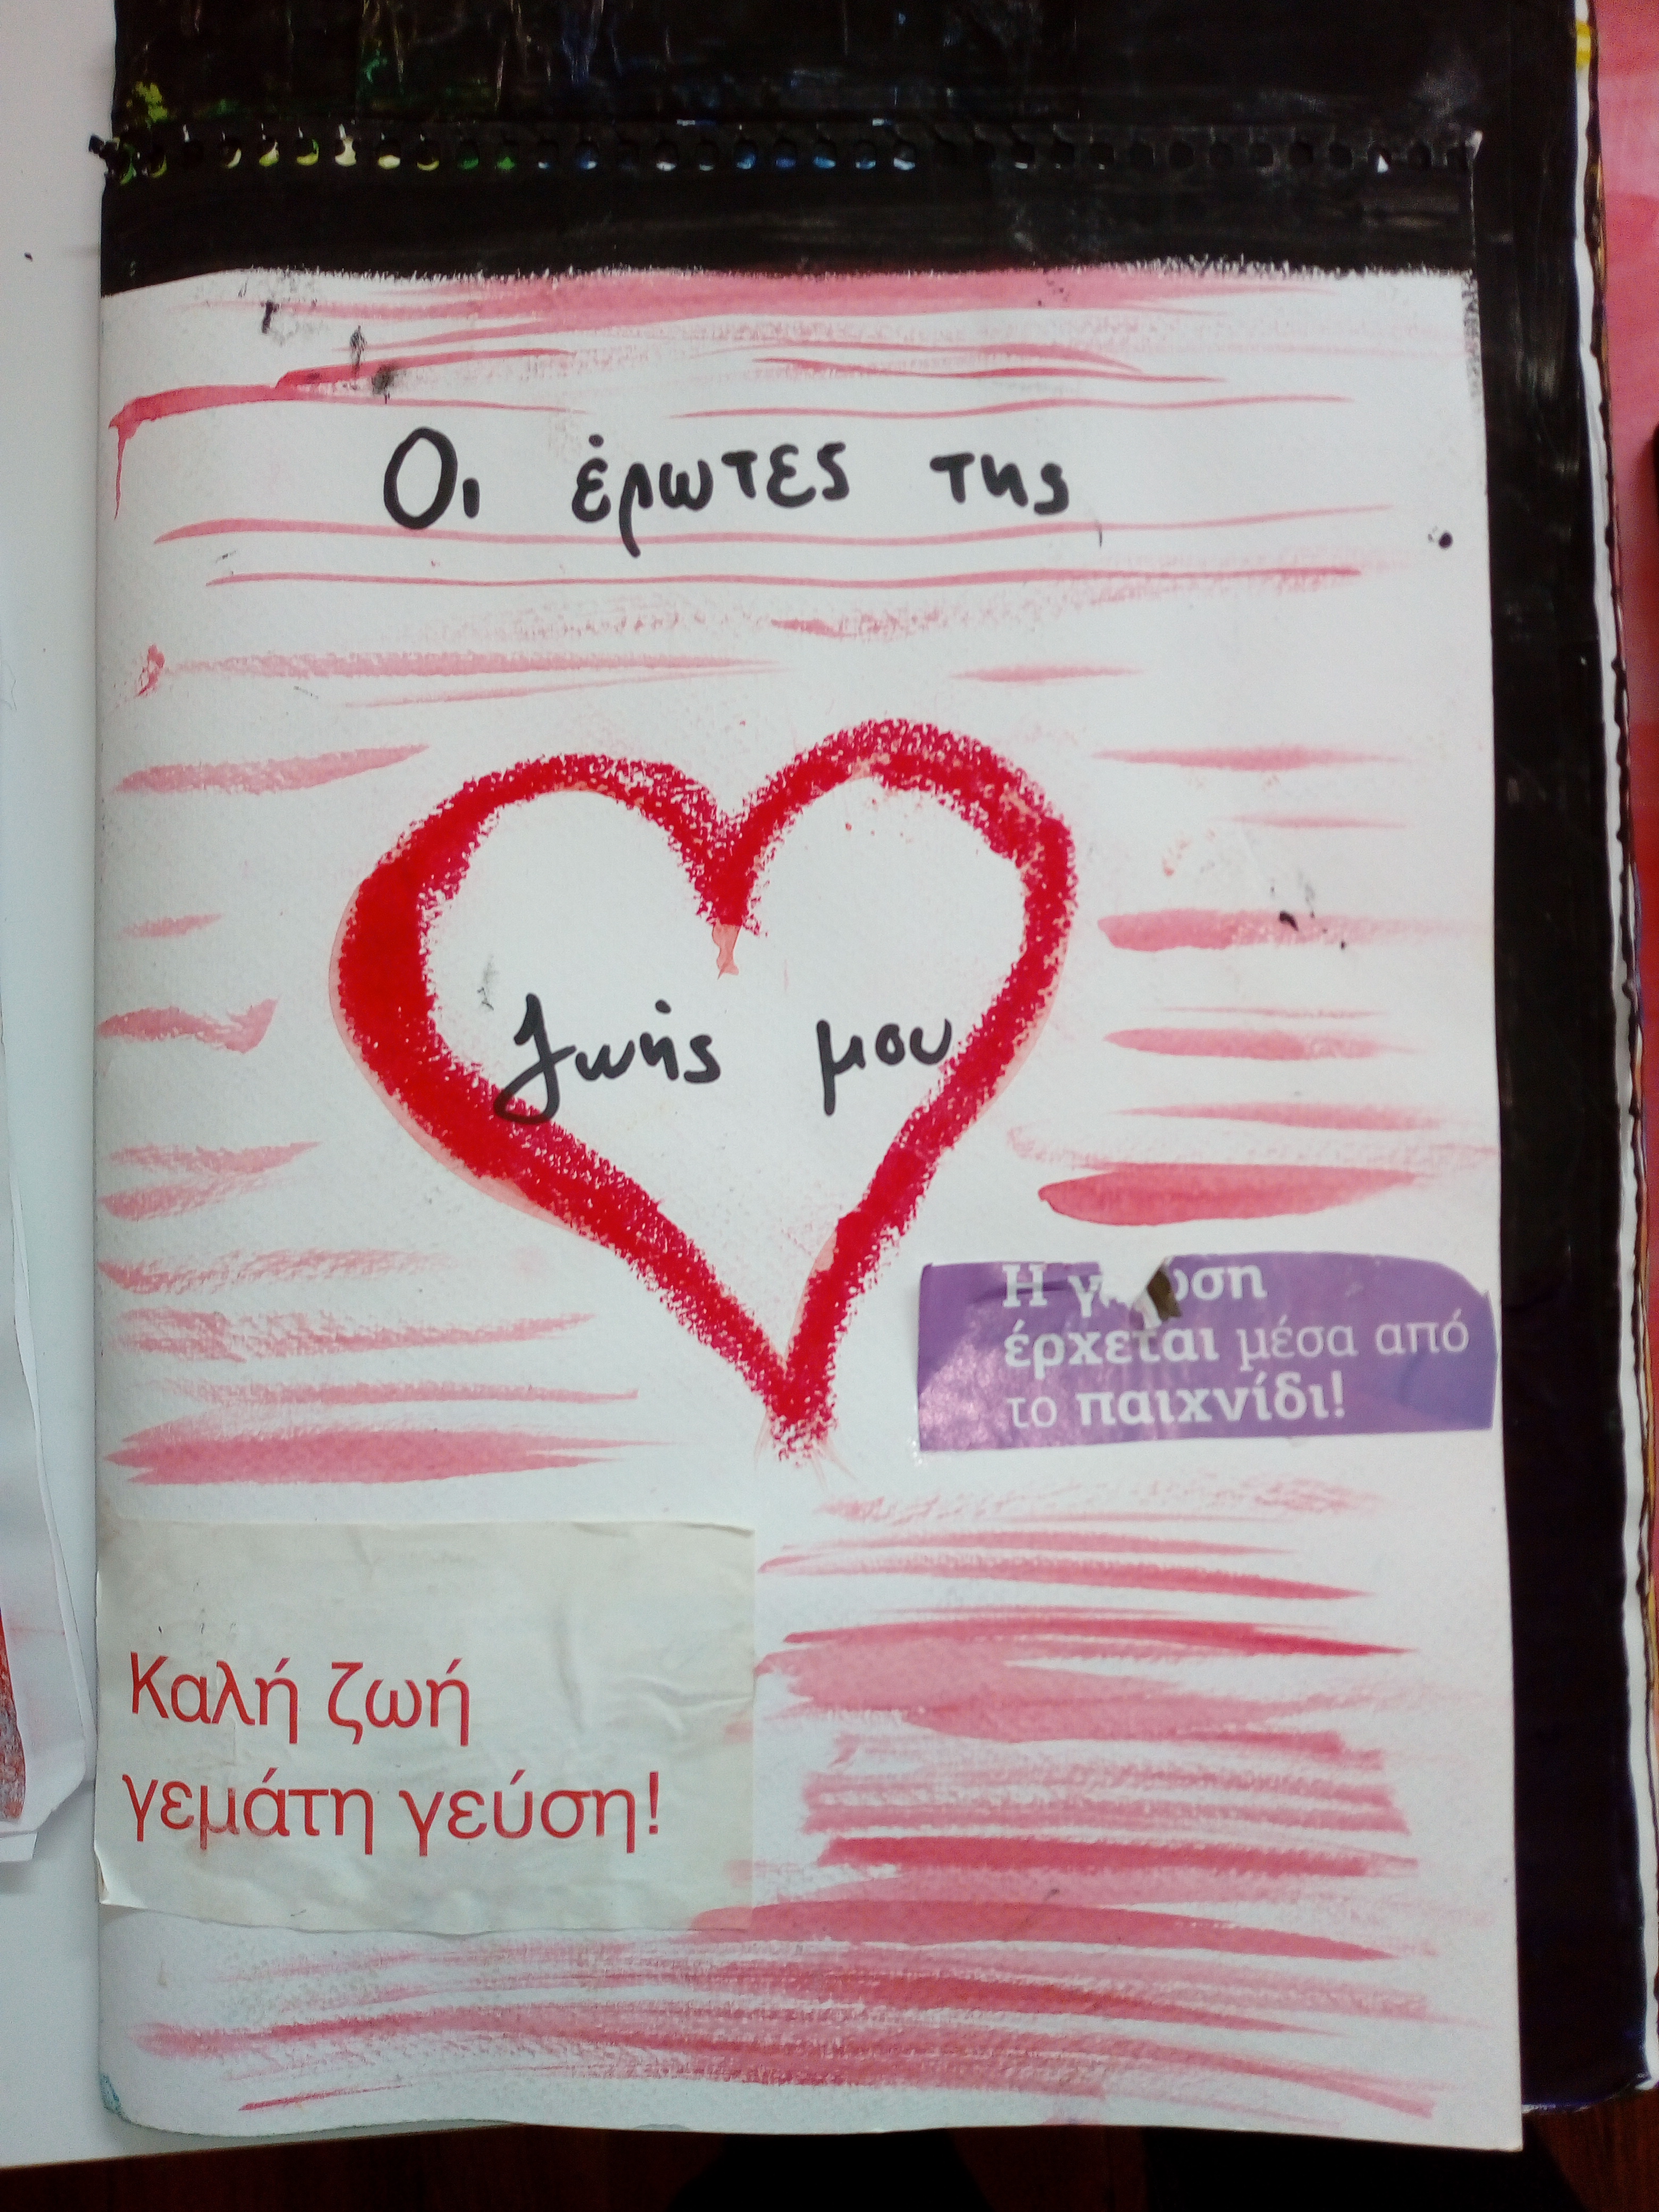 Οι έρωτες της
ζωής μου
Η
έρχεται μέσα από
το παιχνίδι!
Καλή ζωή
γεμάτη γεύση!